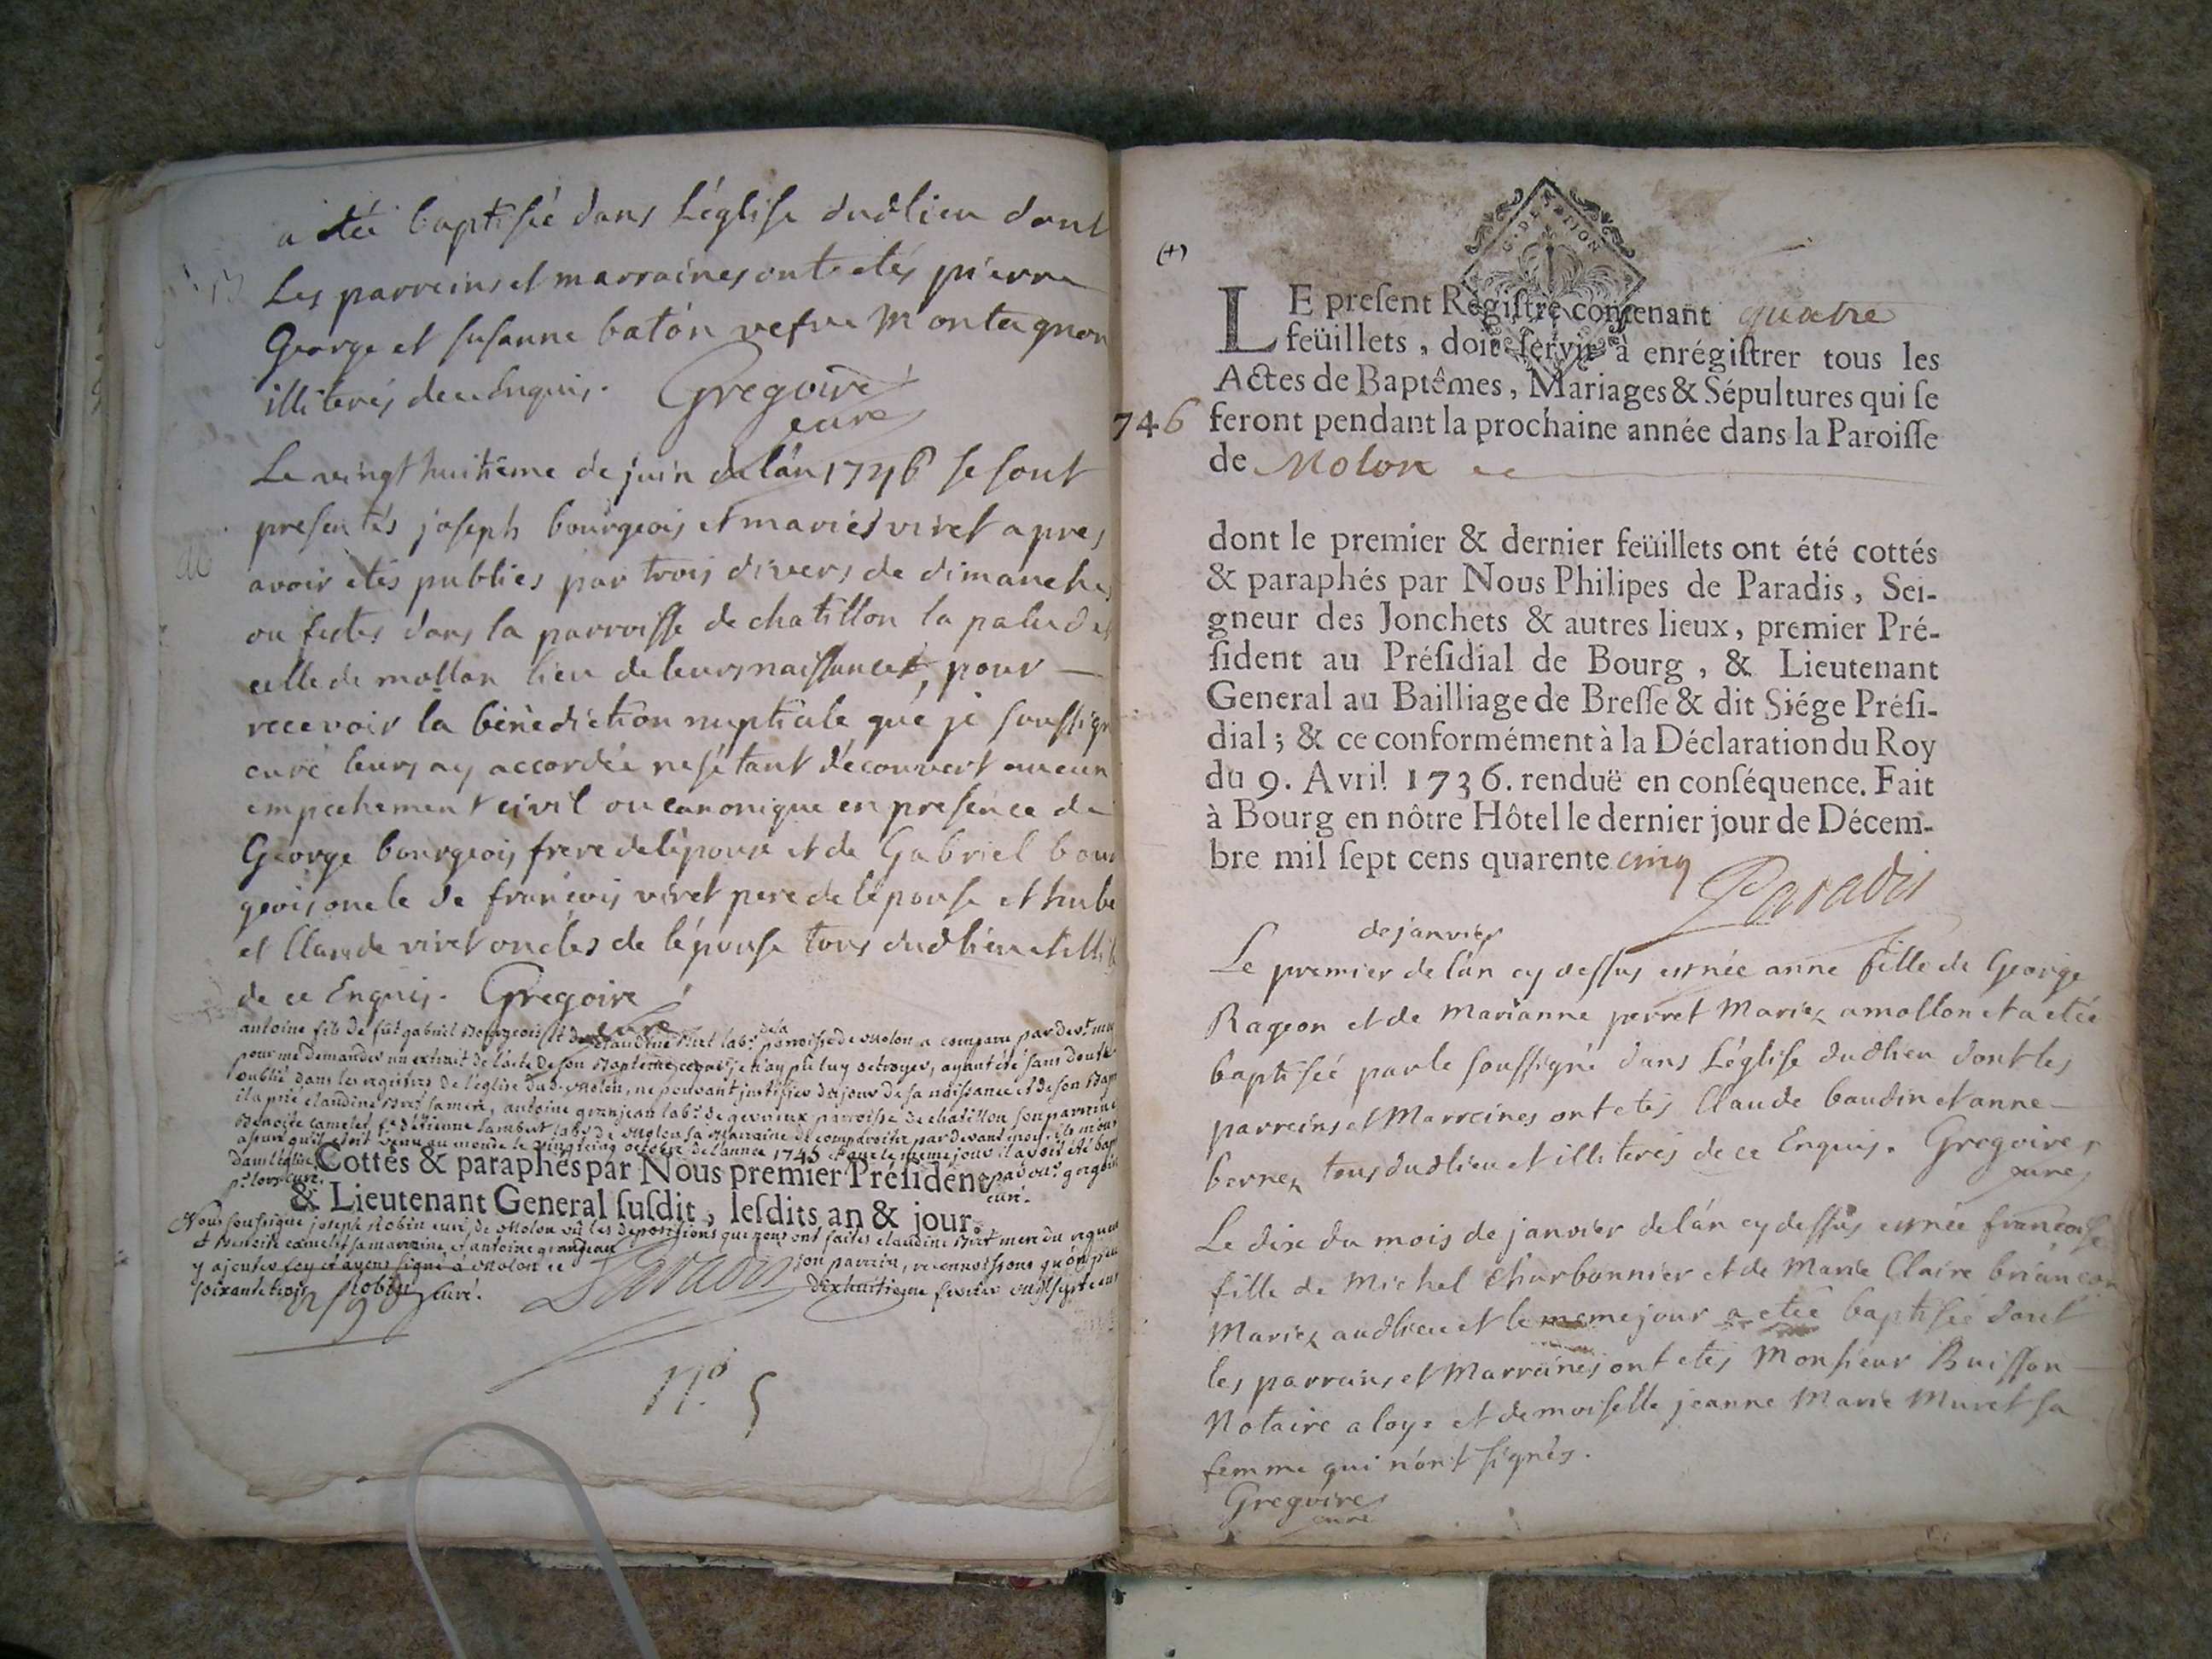 a été baptisée dans L'église dudlieu dont
Les parreins et marraines ont etés pierre
George et susanne batón vefve Montagnon
illiterés de ce Enquis. Gregoire
curé
Le vingt huitiême de juin de lán 1746 se sont
presentés joseph bourgeois et marie viret apres
avoir etés publies par trois divers de dimanches
ou festes dans la parroisse de chatillon la palud et
celle de mollon lieu de leurs naissances, pour
recevoir la bénédiction nuptiale que je soussigné
curé leurs ay accordée ne sétant découvert aucun
empechement civil ou canonique en presence de
George bourgeois frere de lépoux et de Gabriel bour
geois oncle de francois viret pere de lépouse et
et Claude viret oncles de lépouse tous dudlieu
de ce Enquis. Gregoire
curé
antoine fils de fût gabriel Bourgeois et de claudine labr. de la parroisse de Molon a comparu par devt. moy
pour me demander un extrait de l'acte de son Baptême je n'ay pû luy octroyer, ayant été sans doute
oublié dans les registres de l'église dud. Molon, ne pouvant justifier du jour de sa naissance et de son Bap
il a prié claudine sa mere, antoine granjean labr. de gevrieux parroisse de chatillon son parrain
Benoite camelet de Molon sa Marraine de comparoitre par devant moy, ils m'ont
assuré qu'il étoit venu au monde le vingt cinq octobre de l'année 1745 et que le meme jour il avoit été bapt
dans l'église
pr. lors curé.
Cottés & paraphés par Nous premier Présidens
& Lieutenant General susdit, lesdits an & jour.
Nous soussigné joseph Robin curé de Molon vû les depositions que nous ont faites claudine mere du
et Benoite camelet sa marraine et antoine grandjean son parrein, reconnoissons qu'on peu
y ajouter foy et avons signé à Molon ce dixhuitieme
soixante trois Robin curé.
Paradis
No. 5
(+)
G. DE
LE present Registre contenant quatre
feüillets, doit servir à enrégistrer tous les
Actes de Baptêmes, Mariages & Sépultures qui se
746 feront pendant la prochaine année dans la Paroisse
de Molon
dont le premier & dernier feüillets ont été cottés
& paraphés par Nous Philipes de Paradis, Sei-
gneur des Jonchets & autres lieux, premier Pré-
sident au Présidial de Bourg, & Lieutenant
General au Bailliage de Bresse & dit Siége Prési-
dial; & ce conformément à la Déclaration du Roy
du 9. Avril 1736. renduë en conséquence. Fait
à Bourg en nôtre Hôtel le dernier jour de Décem-
bre mil sept cens quarente cinq
Paradis
de janvier
Le premier de lán cy dessus est née anne fille de George
Rageon et de Marianne perret Mariez a mollon et a etée
baptisée par le soussigné dans L'église dudlieu dont les
parreins et Marreines ont etés Claude baudin et anne
bernez tous dudlieu et illiterés de ce Enquis. Gregoire
curé
Le dix du mois de janvier de lán cy dessus est née francoise
fille de Michel Charbonnier et de Marie Claire briancon
Mariez audlieu et le meme jour a etée baptisée dont
les parrains et Marraines ont etés Monsieur Buisson
Notaire a loye et demoiselle jeanne Marie Muret sa
femme qui n'ont signés.
Gregoire
curé